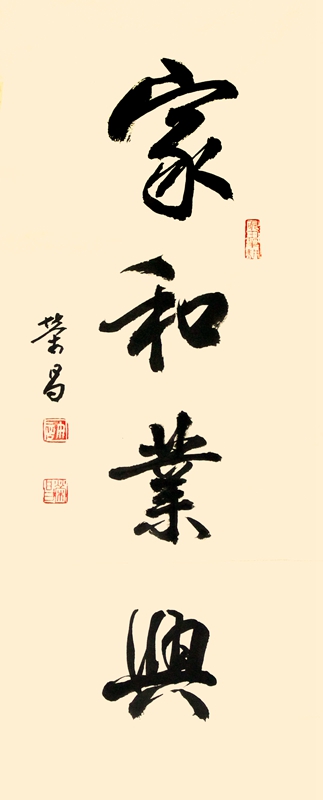 家和業興
榮昌